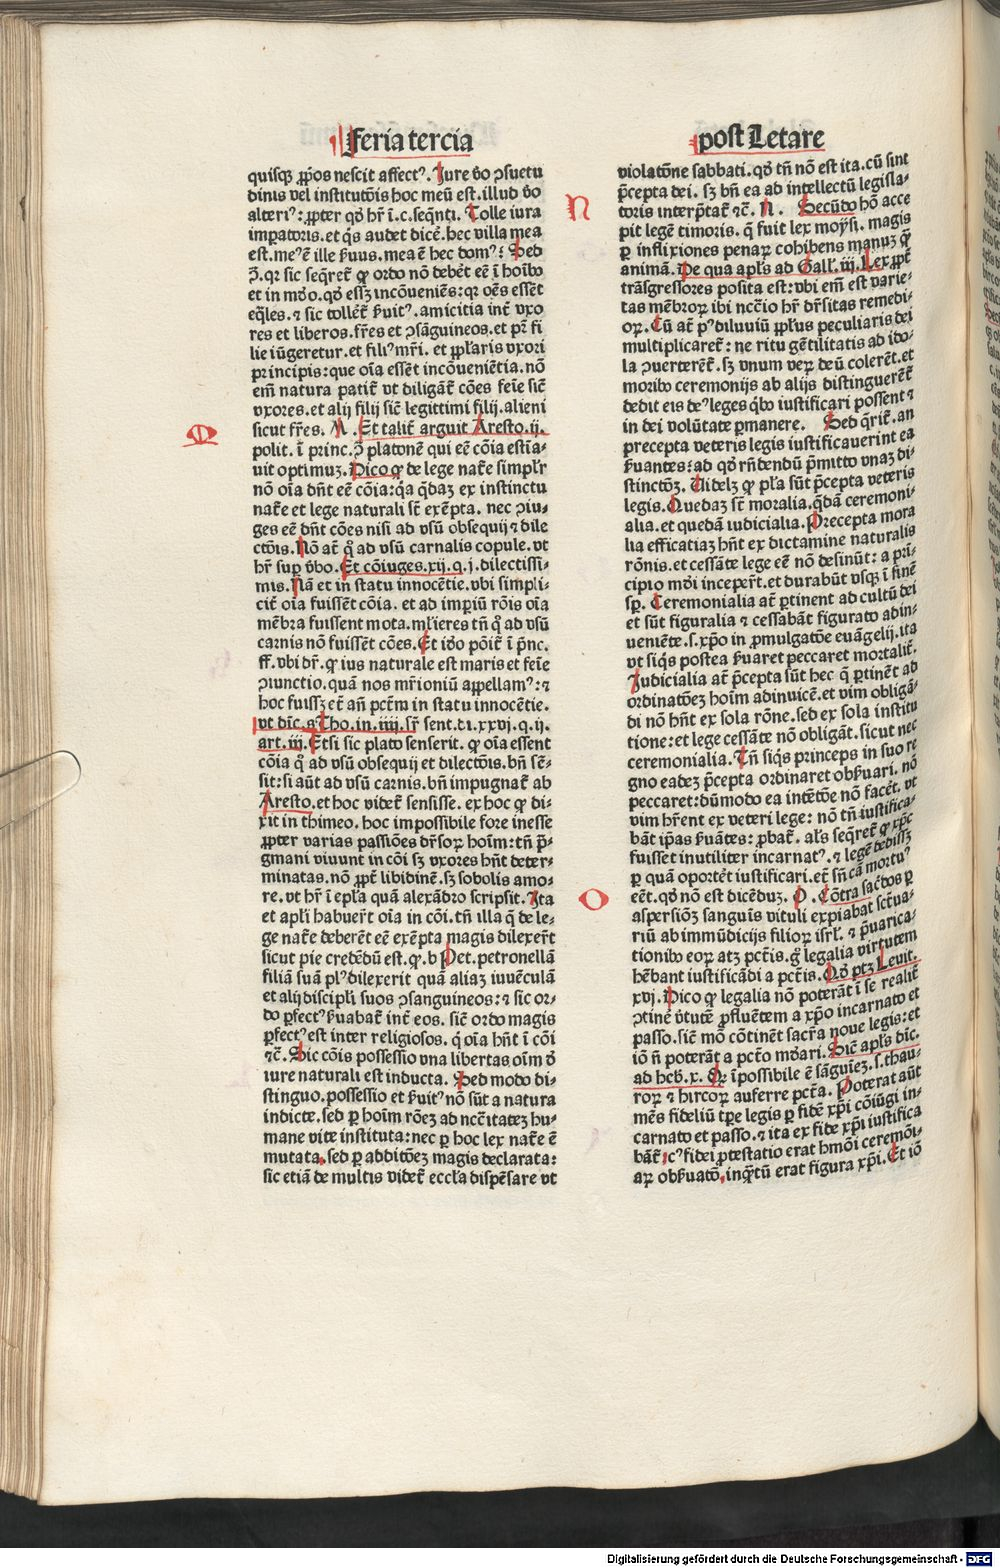 Feria tercia
quisqꝫ ꝓp̄os nescit affectꝰ. Jure ꝟo ↄsuetu
dinis vel institutōis hoc meū est. illud ꝟo
alteriꝰ: ꝓpter qđ hr̄ i.c. seqn̄ti. Tolle iura
imꝑatoris. et q̄s audet dicē. hec villa mea
est. meꝰ ē ille ẜuus. mea ē hec domꝰ: Sed
ↄ̄. qꝛ sic seq̄ret᷑ ꝙ ordo nō debēt eē ī hoībo
et in mōo. qđ essꝫ incōueniēs: qꝛ oēs essēt
eq̄les. ⁊ sic tollēt᷑ ẜuitꝰ. amicitia int̄ vxo
res et liberos. fr̄es et ↄsāguineos. et pr̄ fi
lie iūgeretur. et filiꝰ mr̄i. et ꝓp̄laris vxori
principis: que oīa essēt incōueniētia. nō
em̄ natura patit᷑ vt diligāt᷑ cōes feīe sic̄
vxores. et alij filij sic̄ legittimi filij. alieni
sicut fr̄es. M. Et talit᷑ arguit Aresto. ij.
polit. ī princ. ↄ̄ platonē qui eē cōia estīa-
uit optimuꝫ. Dico ꝙ de lege nat᷑e simpl̄r
nō oīa dn̄t eē cōia: qꝛa q̄dāꝫ ex instinctu
nat᷑e et lege naturali st̄ exēpta. nec ↄiu-
ges eē dn̄t cōes nisi ad vsū obsequij ⁊ dile
ctōis. Nō at̄ q̄ ad vsū carnalis copule. vt
hr̄ suꝑ ꝟbo. Et cōiuges. xij. q. j. dilectissi-
mis. Nā et in statu innocētie. vbi simpli-
cit᷑ oīa fuissēt cōia. et ad imꝑiū rōis oīa
mēbra fuissent mota. ml̄ieres tn̄ q̄ ad vsū
carnis nō fuissēt cōes. Et iđo pōit᷑ ī p̄nc.
ff. vbi dr̄. ꝙ ius naturale est maris et feīe
ↄiunctio. quā nos mr̄ioniū appellamꝰ: ⁊
hoc fuissꝫ et᷑ an̄ pctm̄ in statu innocētie.
vt dic̄. s. Tho. in. iiij. sr̄ sent. di. xxvj. q. ij.
art. iij. Etsi sic plato senserit. ꝙ oīa essent
cōia q̄ ad vsū obsequij et dilectōis. bn̄ sē-
sit: si aūt ad vsū carnis. bn̄ impugnat᷑ ab
Aresto. et hoc videt᷑ sensisse. ex hoc ꝙ di-
xit in thimeo. hoc impossibile fore inesse
ꝓpter varias passiōes dr̄soꝝ hoīm: tn̄ p̄-
gmani viuunt in cōi sꝫ vxores hn̄t deter-
minatas. nō ꝓpt᷑ libidinē. sꝫ sobolis amo-
re. vt hr̄ ī epl̄a quā alexādro scripsit. Ita
et apl̄i habuer̄t oīa in cōi. tn̄ illa q̄ de le-
ge nat᷑e deberēt eē exēpta magis dilexer̄t
sicut pie credēdū est. ꝙ. b Pet. petronellā
filiā suā plꝰ dilexerit quā aliaꝫ iuuēculā
et alij discipl̄i suos ↄsanguineos: ⁊ sic or-
do ꝑfectꝰ ẜuabat᷑ int̄ eos. sic̄ ordo magis
ꝑfectꝰ est inter religiosos. q̄ oīa hn̄t ī cōi
⁊c̄. Sic cōis possessio vna libertas oīm đ
iure naturali est inducta. Sed modo di-
stinguo. possessio et ẜuitꝰ nō sūt a natura
indicte. sed ꝑ hoīm rōeꝫ ad nccītateꝫ hu-
mane vite instituta: nec ꝑ hoc lex nat᷑e ē
mutata. sed ꝑ additōeꝫ magis declarata:
sic etiā de multis videt᷑ eccl̄a dispēsare vt
M
post Letare
violatōne sabbati. qđ tn̄ nō est ita. cū sint
p̄cepta dei. sꝫ bn̄ ea ad intellectū legisla-
toris interp̄tat᷑ ⁊c̄. N. Secūdo hō acce
pit legē timoris. q̄ fuit lex moȳsi. magis
ꝑ inflixiones penaꝝ cohibens manuꝫ q̄
animā. De qua apl̄s ad Gall̄. iij. Lex ꝓpt᷑
trāsgressores posita est: vbi em̄ est varie-
tas mēbroꝝ ibi ncc̄io hr̄ dr̄sitas remedi-
oꝝ. Cū at̄ pꝰ diluuiū ꝓpl̄us peculiaris dei
multiplicaret᷑: ne ritu gētilitatis ad ido-
la ↄuerteret᷑. sꝫ vnum veꝝ deū colerēt. et
moribꝰ ceremonijs ab alijs distinguerēt᷑
dedit eis đꝰ leges q̄bꝰ iustificari possent ⁊
in dei volūtate ꝑmanere. Sed q̄rit᷑. an
precepta veteris legis iustificauerint ea
ẜuantes: ad qđ rn̄dendū p̄mitto vnaꝫ di-
stinctōꝫ. Videlꝫ ꝙ pl̄a sūt p̄cepta veteris
legis. Quedaꝫ st̄ moralia. q̄dā ceremoni-
alia. et quedā iudicialia. Precepta mora
lia efficatiaꝫ hn̄t ex dictamine naturalis
rōnis. et cessāte lege eē nō desinūt: a pri-
cipio mōi inceper̄t. et durabūt vsqꝫ ī finē
sꝑ. Ceremonialia at̄ ꝑtinent ad cultū dei
et sūt figuralia ⁊ cessabāt figurato adin-
ueniēte. s. xp̄o in ꝓmulgatōe euāgelij. ita
vt siq̄s postea ẜuaret peccaret mortalit᷑.
Judicialia at̄ p̄cepta sūt hec q̄ ꝑtinēt ad
ordinatōeꝫ hoīm adinuicē. et vim obligā-
di nō hn̄t ex sola rōne. sed ex sola institu
tione: et lege cessāte nō obligāt. sicut nec
ceremonialia. Tn̄ siq̄s princeps in suo re
gno eadeꝫ p̄cepta ordinaret obẜuari. nō
peccaret: dūmodo ea intētōe nō facēt. vt
vim hr̄ent ex veteri lege: nō tn̄ iustifica-
bāt ip̄as ẜuātes: ꝓbat᷑. al̄s seq̄ret᷑ ꝙ xp̄c
fuisset inutiliter incarnatꝰ. ⁊ legē dedissꝫ
ꝑ quā oportēt iustificari. et᷑ sn̄ cā mortuꝰ
eēt. qđ nō est dicēduꝫ. O. Cōtra sac̄dos ꝑ
aspersiōꝫ sanguīs vituli expiabat sct̄ua-
riū ab immūdicijs filioꝝ isrl̄. ⁊ p̄uarica-
tionibꝰ eoꝝ atqꝫ pct̄is. g̊ legalia virtutem
hēbant iustificādi a pct̄is. Qđ ptꝫ Leuit.
xvj. Dico ꝙ legalia nō poterāt ī se realit᷑
ↄtinē ꝟtutē ꝓfluētem a xp̄o incarnato et
passo. sic̄ mō cōtinēt sacr̄a noue legis: et
iō n̄ poterāt a pct̄o mūdari. Sic̄ apl̄s dic̄.
ad heb̄. x. Qꝛ īpossibile ē sāguieꝫ. s. thau-
roꝝ ⁊ hircoꝝ auferre pct̄a. Poterat aūt
mēs fideliū tꝑe legis ꝑ fidē xp̄i cōiūgi in-
carnato et passo. ⁊ ita ex fide xp̄i iustifica
bāt᷑: cꝰ fidei ꝓtestatio erat hmōi ceremōi-
aꝝ obẜuatō. inq̄tū erat figura xp̄i. Et iō
N
O
Digitalisierung gefördert durch die Deutsche Forschungsgemeinschaft - DFG